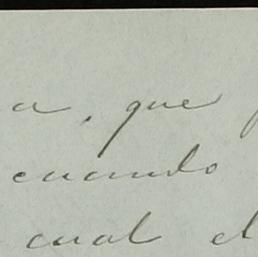 a, que
cuando
cual el